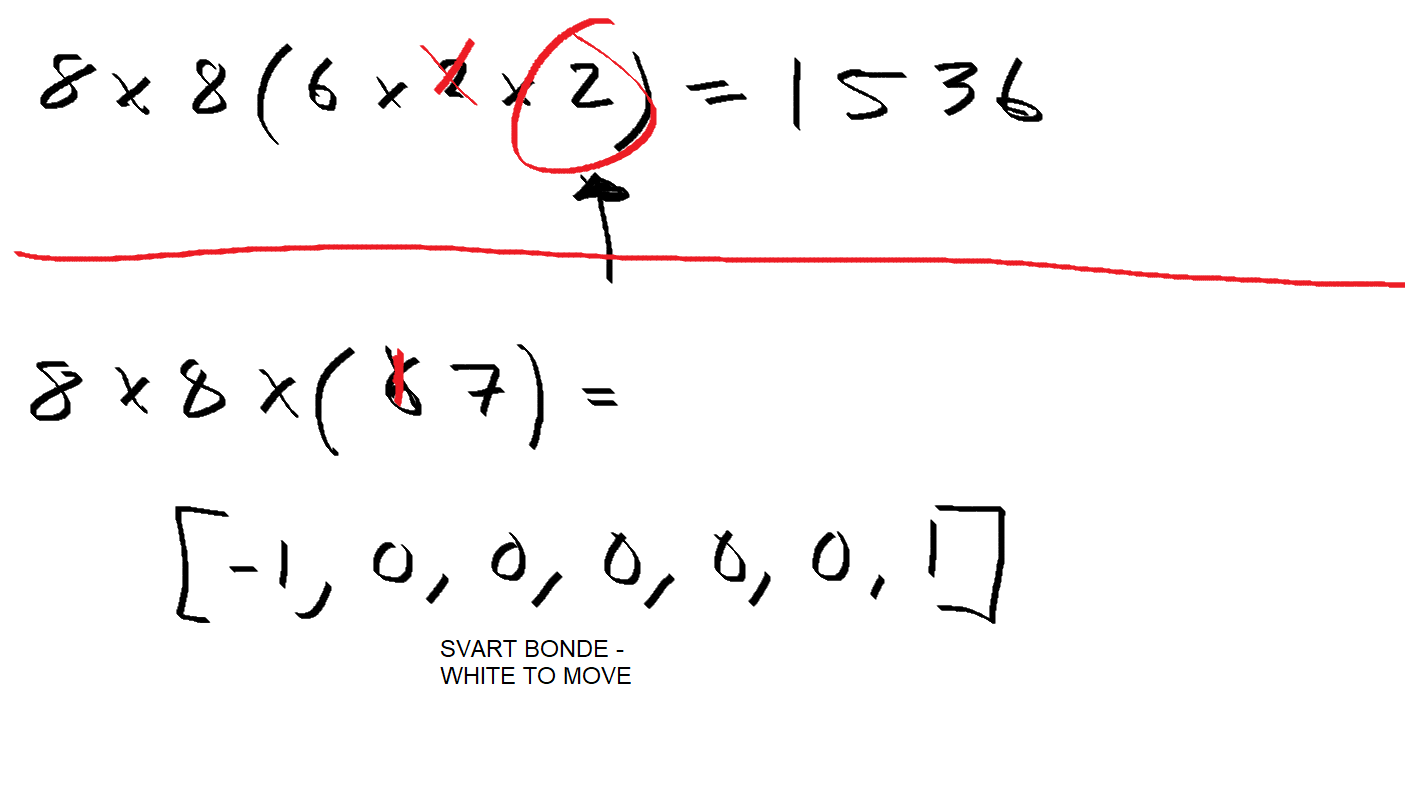 8 x 8 (6 x 2 x 2) = 1536
8 x 8 x ( 7) =
[-1, 0, 0, 0, 0, 0, 1]
SVART BONDE -
WHITE TO MOVE